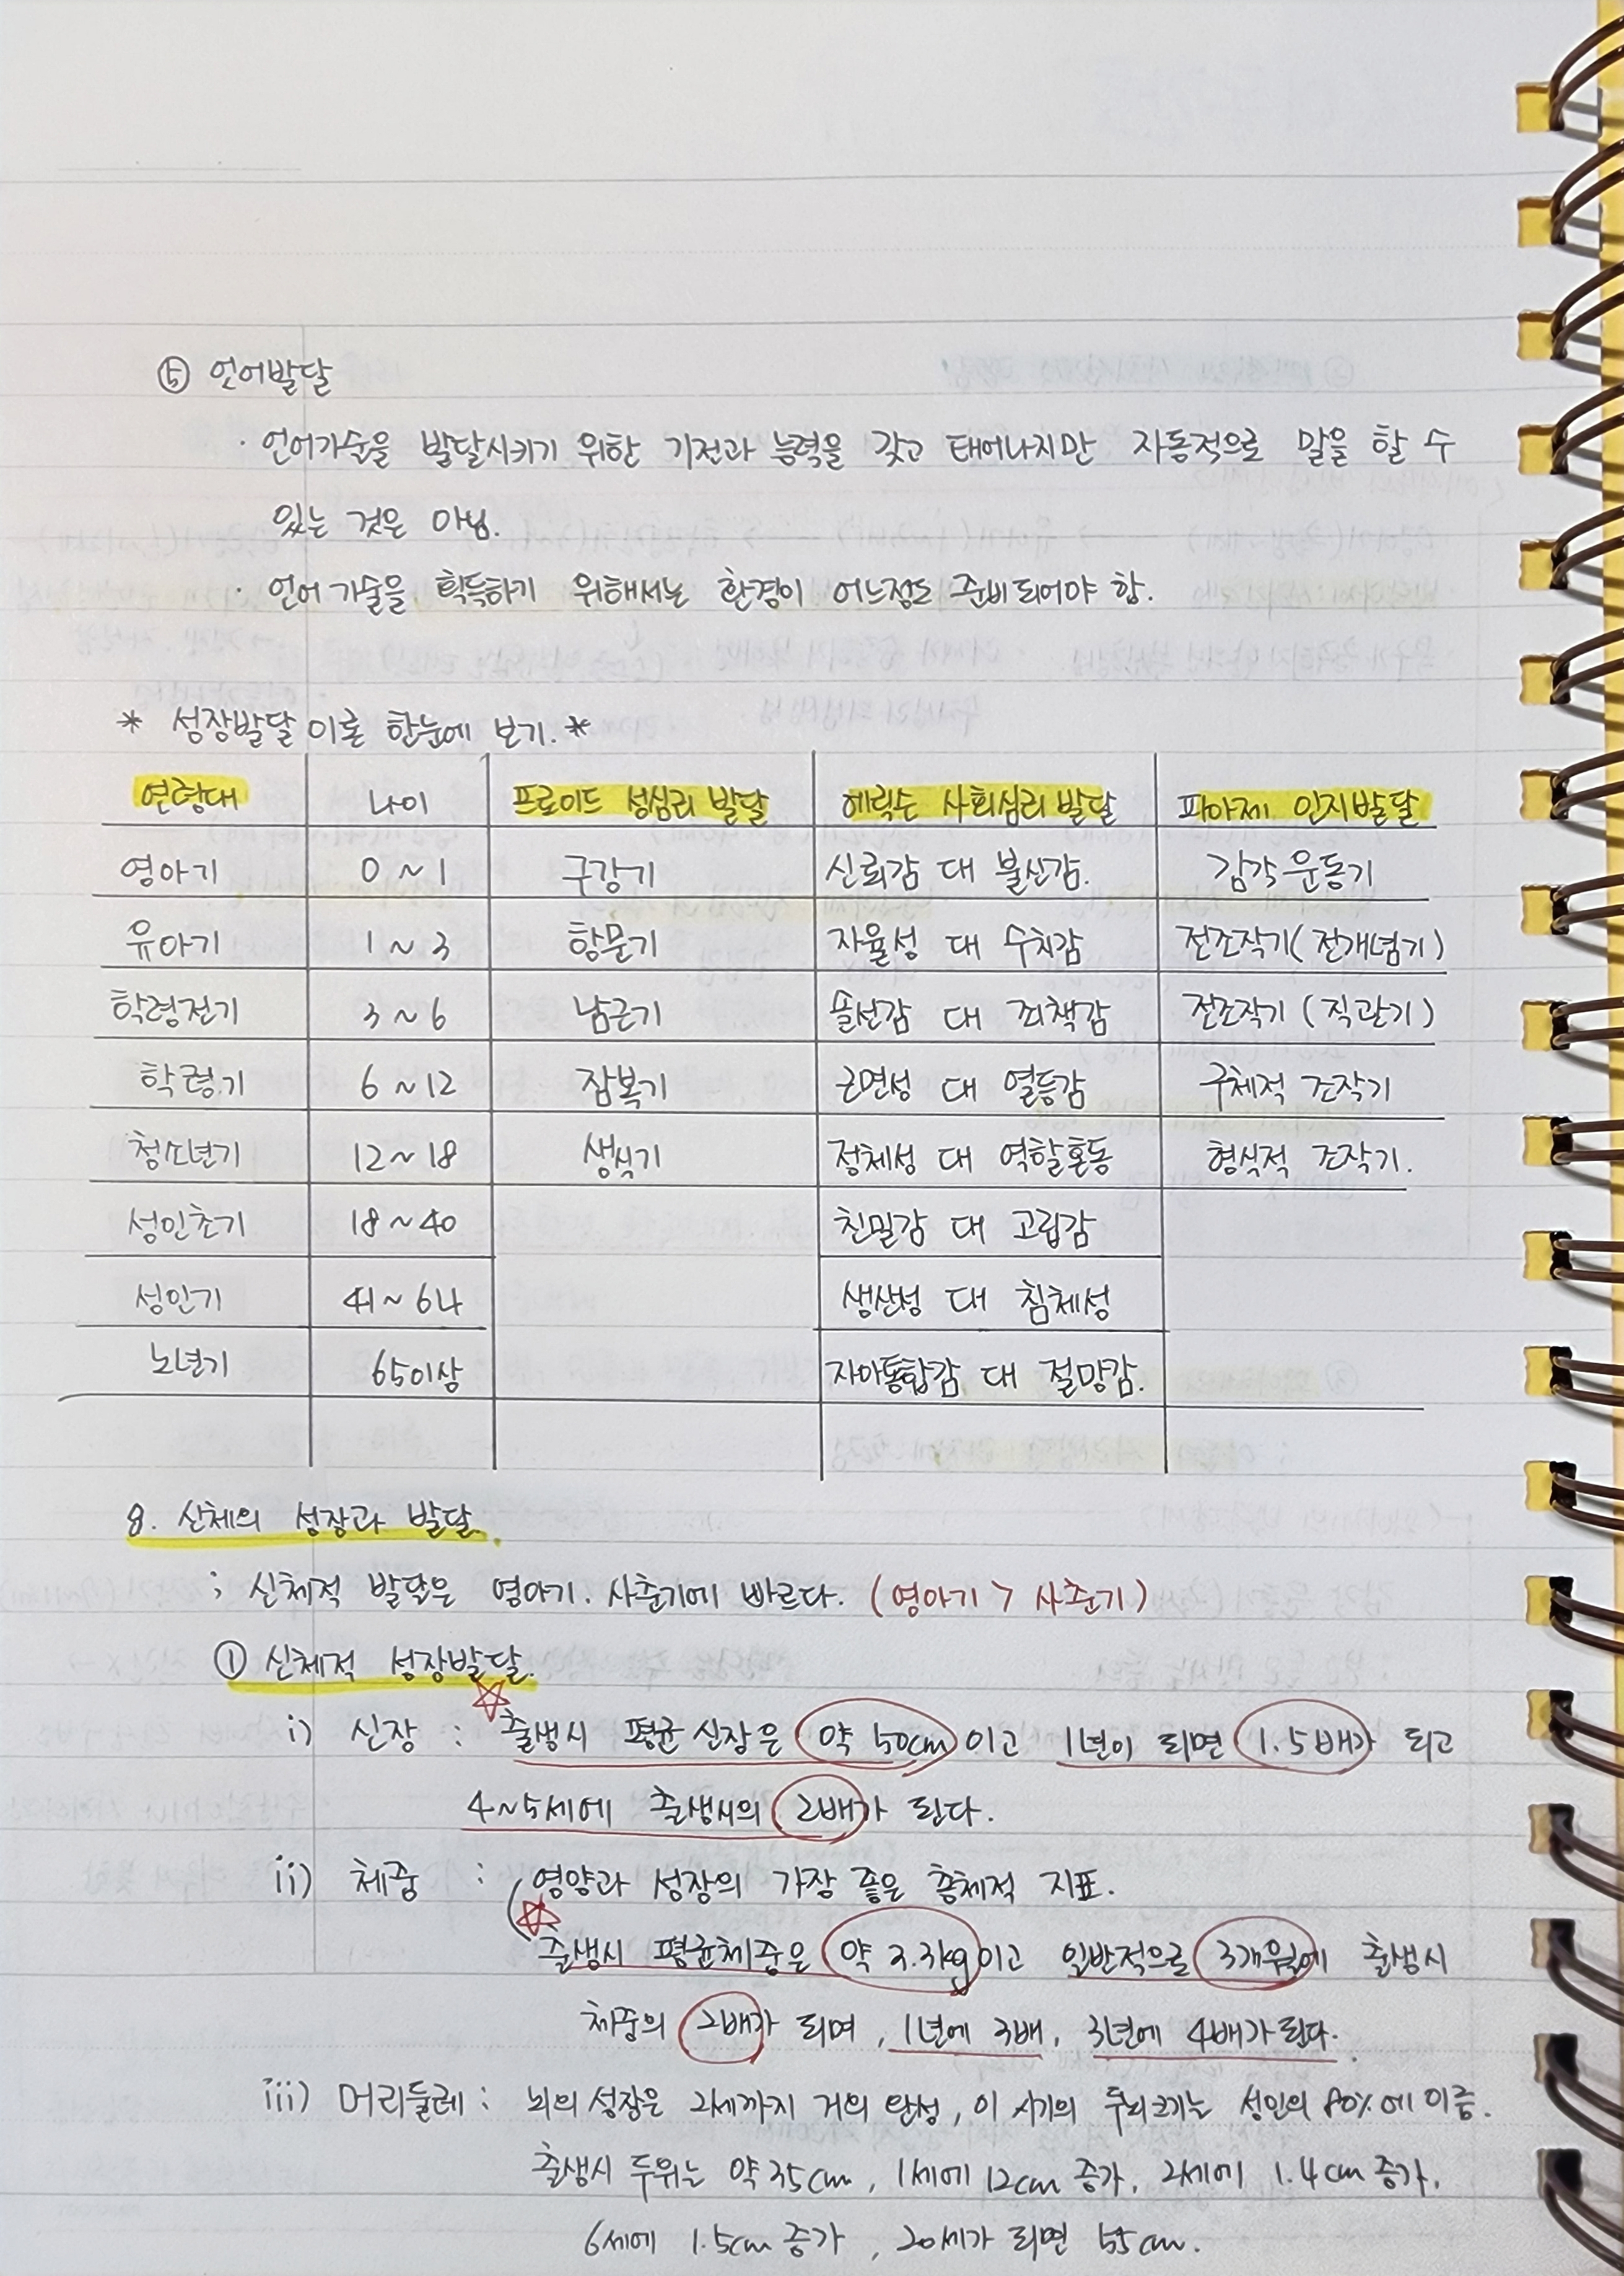 ⑤ 언어발달
· 언어기술을 발달시키기 위한 기전과 능력을 갖고 태어나지만 자동적으로 말을 할 수
있는 것은 아님.
· 언어 기술을 획득하기 위해서는 환경이 어느정도 준비되어야 함.
* 성장발달 이론 한눈에 보기. *
연령대 나이 프로이드 성심리 발달 에릭슨 사회심리 발달 피아제 인지발달
영아기 0 ~ 1 구강기 신뢰감 대 불신감. 감각운동기
유아기 1 ~ 3 항문기 자율성 대 수치감 전조작기(전개념기)
학령전기 3 ~ 6 남근기 솔선감 대 죄책감 전조작기 (직관기)
학령기 6 ~ 12 잠복기 근면성 대 열등감 구체적 조작기
청소년기 12 ~ 18 생식기 정체성 대 역할혼동 형식적 조작기.
성인초기 18 ~ 40 친밀감 대 고립감
성인기 41 ~ 64 생산성 대 침체성
노년기 65이상 자아통합감 대 절망감.
8. 신체의 성장과 발달.
; 신체적 발달은 영아기. 사춘기에 빠르다. (영아기 > 사춘기)
① 신체적 성장발달.
i) 신장 : ☆출생시 평균 신장은 약 50cm 이고 1년이 되면 1.5배가 되고
4~5세에 출생시의 2배가 된다.
ii) 체중 : 영양과 성장의 가장 좋은 총체적 지표.
☆출생시 평균체중은 약 3.3kg이고 일반적으로 3개월에 출생시
체중의 2배가 되며, 1년에 3배, 3년에 4배가 된다.
iii) 머리둘레 : 뇌의 성장은 2세까지 거의 완성, 이 시기의 두뇌크기는 성인의 80%에 이름.
출생시 두위는 약 35cm, 1세에 12cm 증가, 2세에 1.4cm 증가,
6세에 1.5cm 증가, 20세가 되면 55cm.